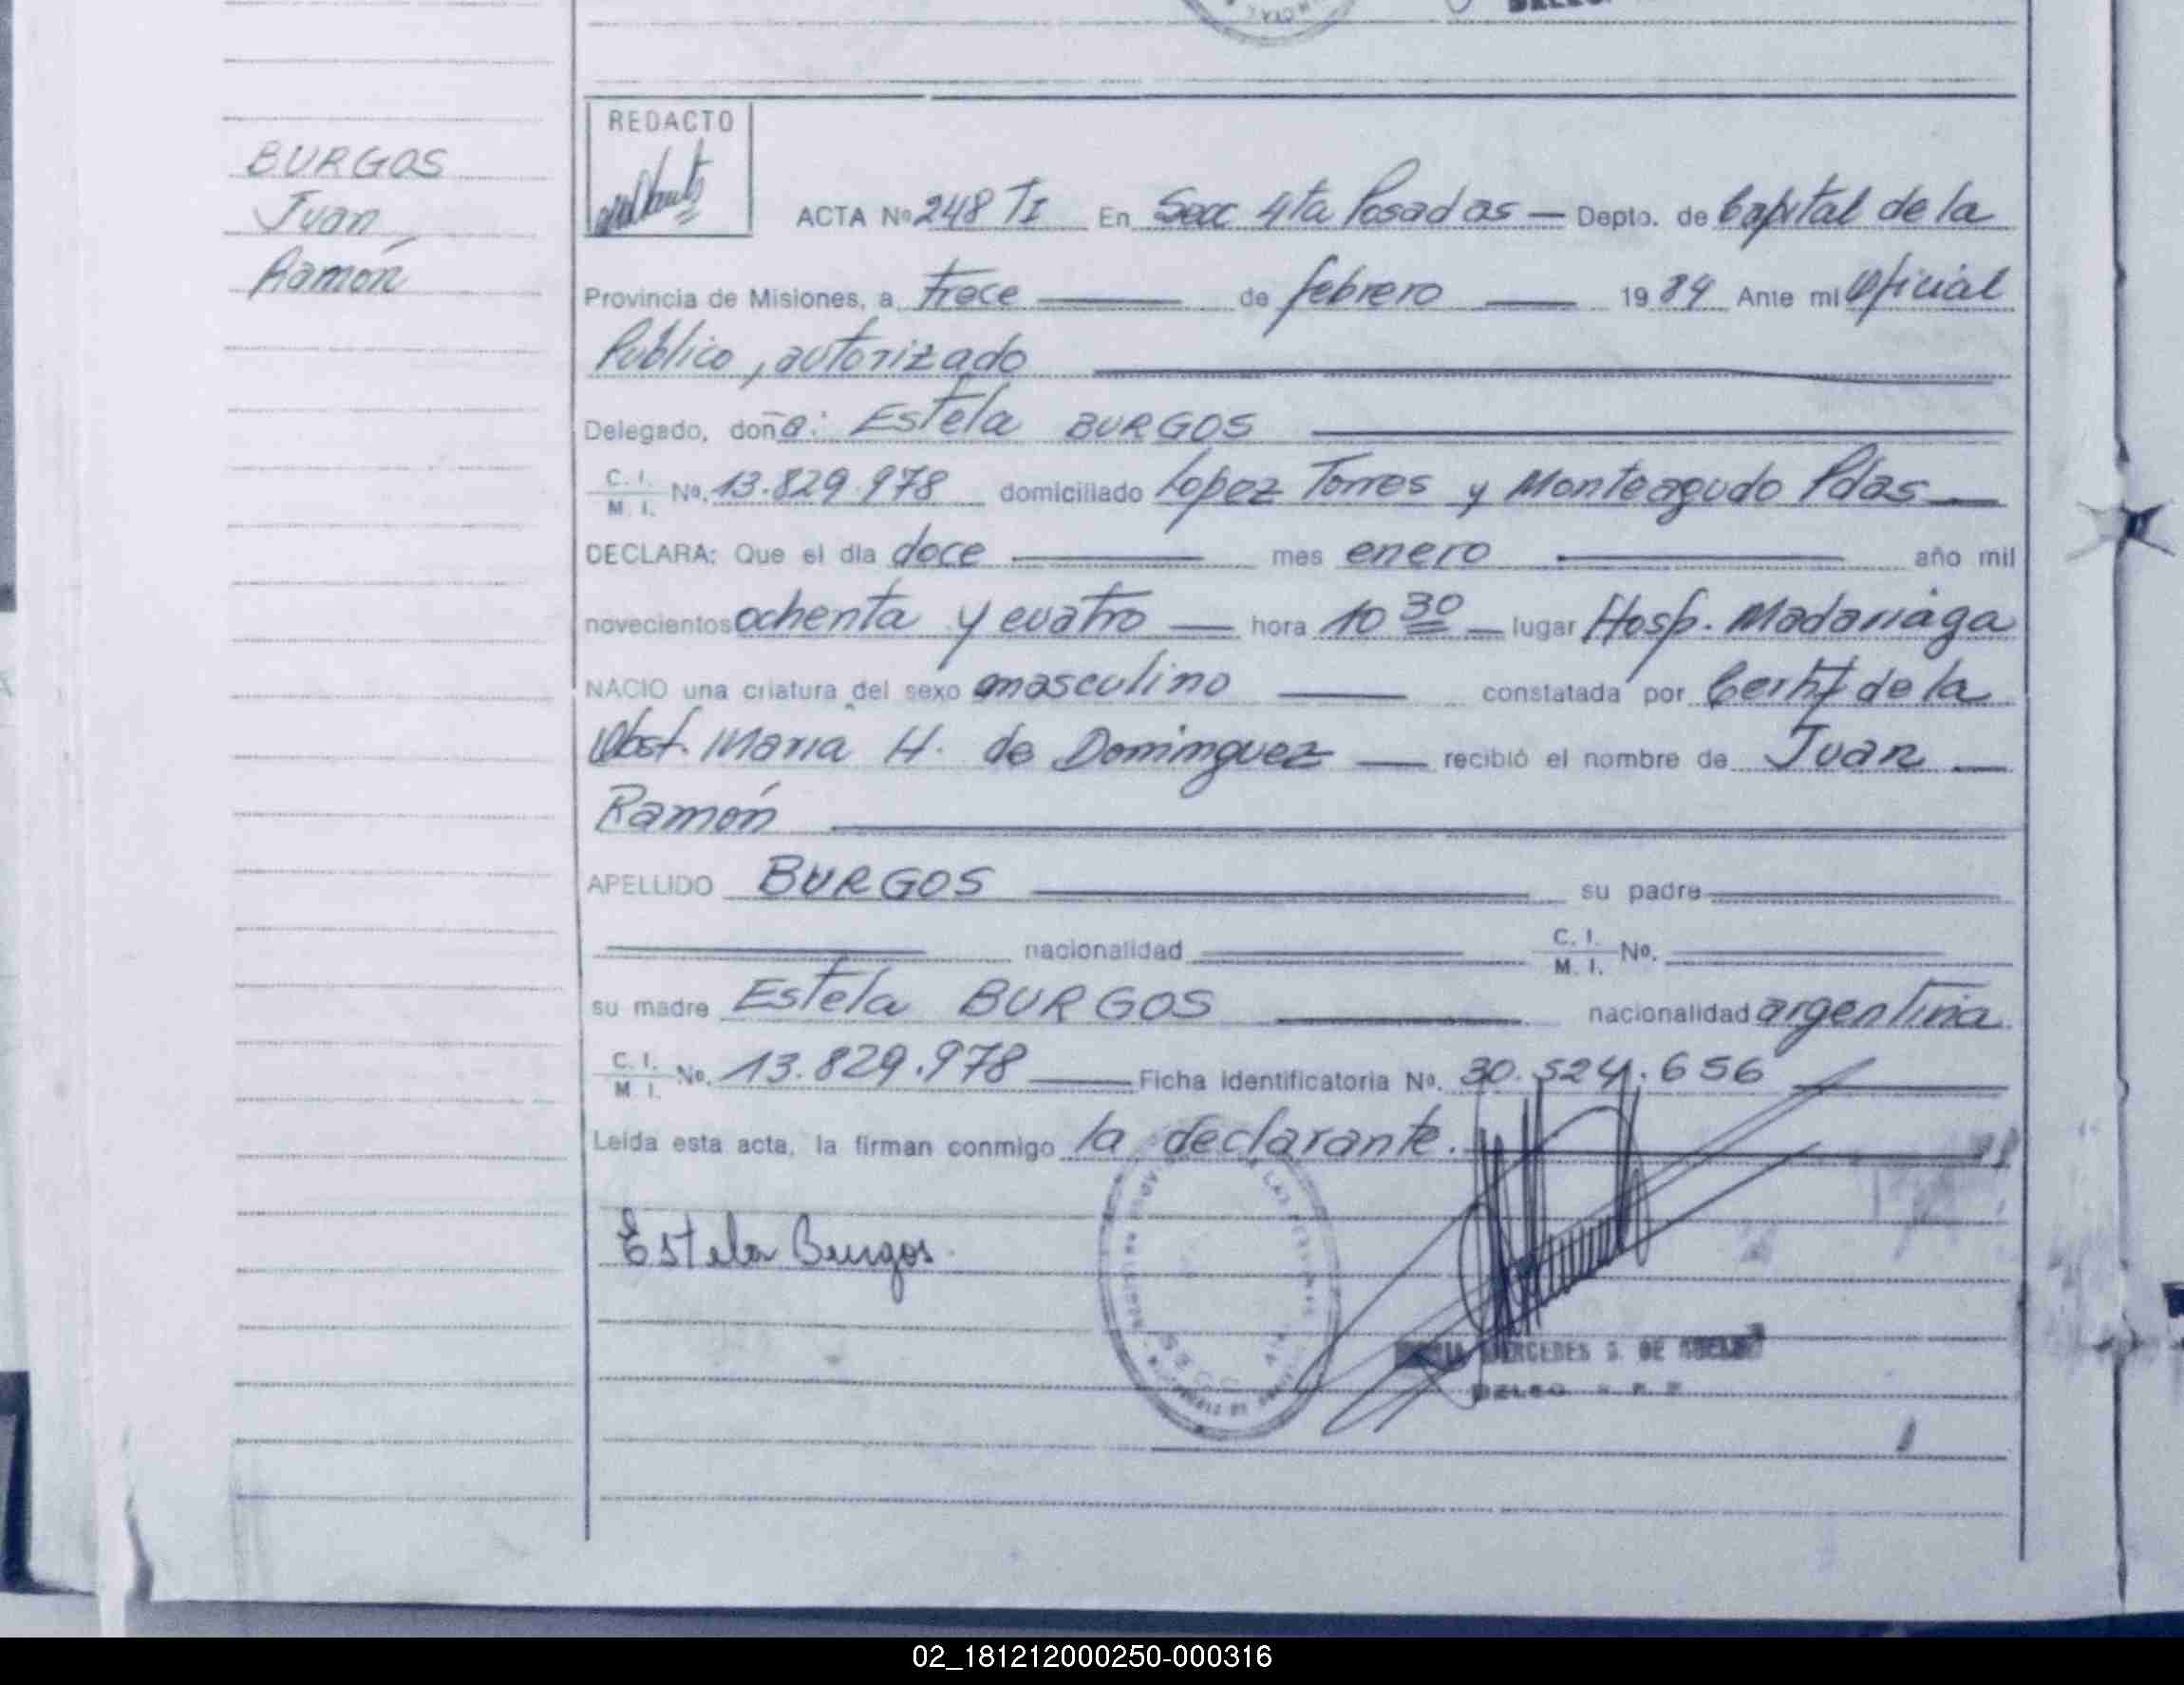 BURGOS
Juan
Ramón
REDACTO
ACTA Nº 248 TI En Secc 4ta Posadas — Depto. de Capital de la
Provincia de Misiones, a trece — de febrero — 1984 Ante mi Oficial
Publico, autorizado
Delegado, doña: Estela BURGOS
C. I. / M. I. Nº. 13.829.978 domiciliado Lopez Torres y Monteagudo Pdas —
DECLARA: Que el dia doce — mes enero — año mil
novecientos ochenta y cuatro — hora 10 30 — lugar Hosp. Madariaga
NACIO una criatura del sexo masculino — constatada por Certif de la
Obst. Maria H. de Dominguez — recibió el nombre de Juan —
Ramón
APELLIDO BURGOS — su padre —
— nacionalidad — C. I. / M. I. Nº. —
su madre Estela BURGOS — nacionalidad argentina
C. I. / M. I. Nº. 13.829.978 — Ficha Identificatoria Nº. 30.524.656 —
Leida esta acta, la firman conmigo la declarante. —
Estela Burgos.
MERCEDES S. DE
02_181212000250-000316